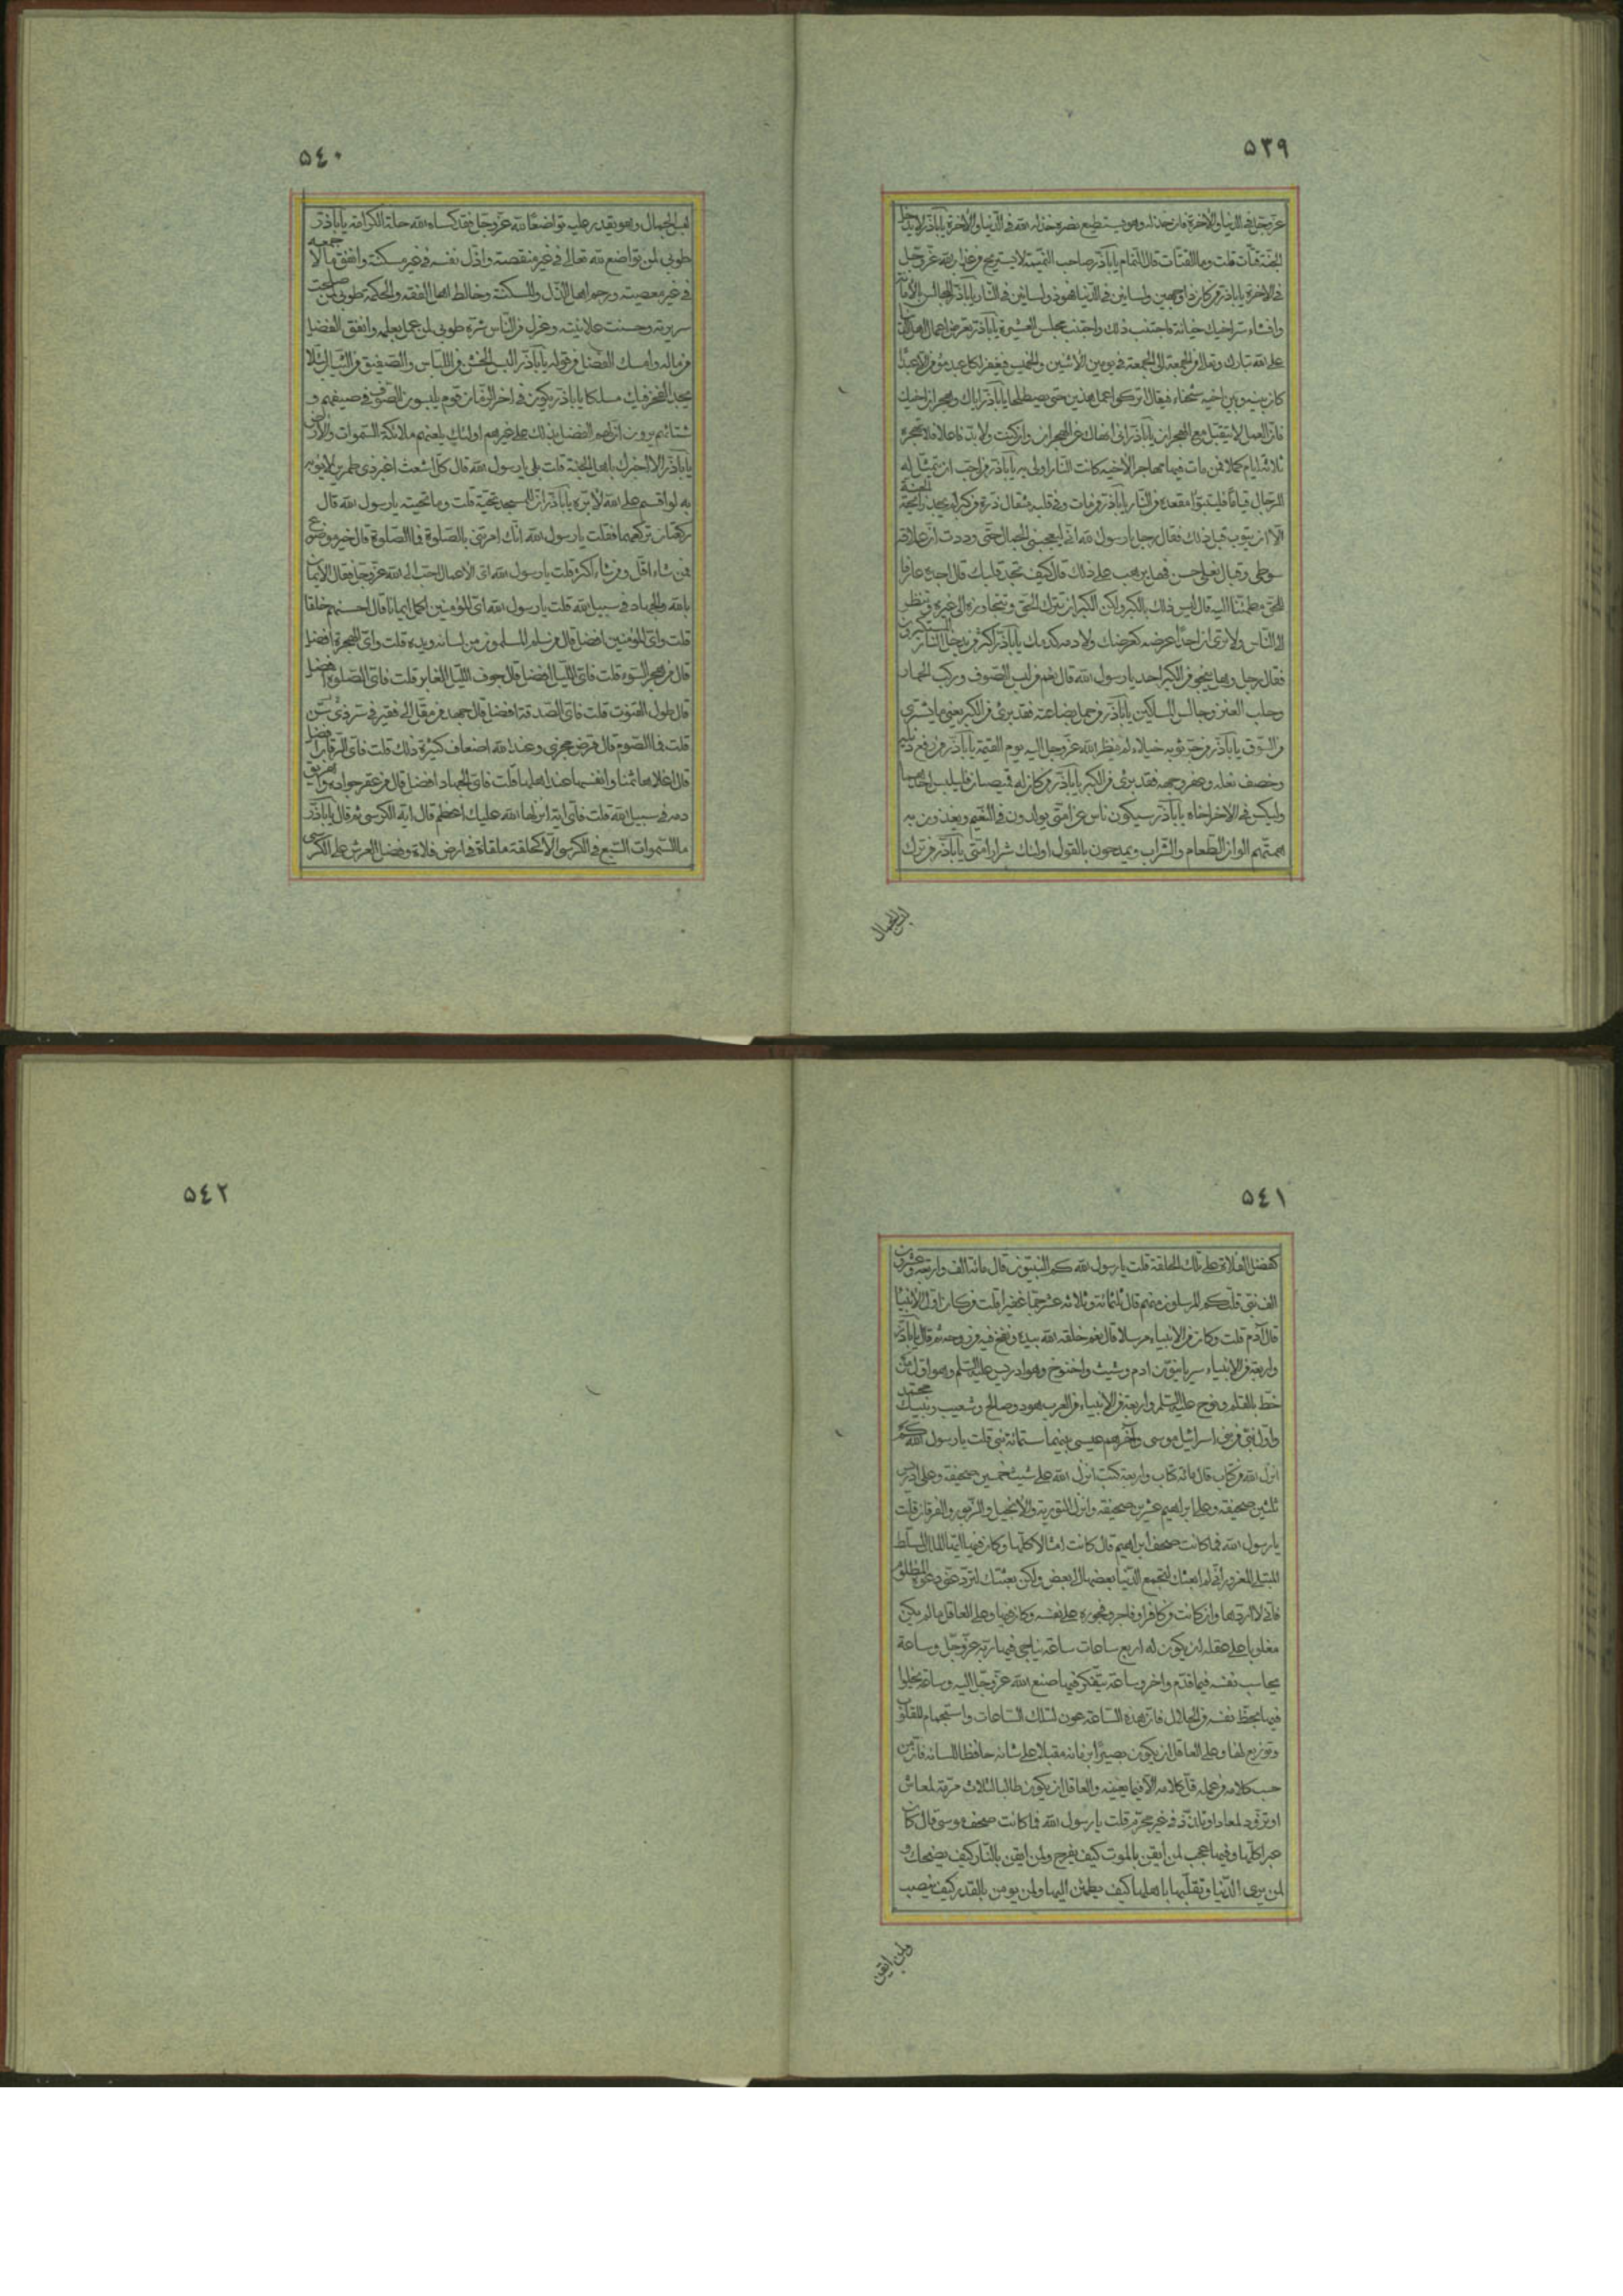 ٥٣٩
عزّوجلّ فی الدّنیا والآخرة فان خذله وهو یستطیع نصره خذله الله فی الدّنیا والآخرة یا اباذر لا یدخل
الجنّة قتّات قلت وما القتّات قال النّمام یا اباذر صاحب النّمیمة لا یستریح من عذاب الله عزّوجلّ
فی الآخرة یا اباذر من کان ذا وجهین ولسانین فی الدّنیا فهو ذو لسانین فی النّار یا اباذر المجالس بالامانة
وافشاء سرّ اخیک خیانة فاجتنب ذلک واجتنب مجلس العشیرة یا اباذر تعرض اعمال اهل الدّنیا
علی الله تبارک وتعالی من الجمعة الی الجمعة فی یومین الاثنین والخمیس فیغفر لکل عبد مؤمن الا عبدا
کان بینه وبین اخیه شحناء فیقال اترکوا عمل هذین حتی یصطلحا یا اباذر ایاک وهجران اخیک
فانّ العمل لا یتقبّل مع الهجران یا اباذر انی انهاک عن الهجران وان کنت ولا بد فاعلا فلا تهجره
ثلاثة ایام کملا فمن مات فیها مهاجرا لاخیه کانت النار اولی به یا اباذر من احب ان یتمثّل له
الرّجال قیاما فلیتبوّا مقعده من النار یا اباذر من مات وفی قلبه مثقال ذرة من کبر لم یجد رائحة الجنة
الا ان یتوب قبل ذلک فقال رجل یا رسول الله انی لیعجبنی الجمال حتی وددت ان علاقة
سوطی وقبال نعلی حسن فهل یرهب علی ذلک قال کیف تجد قلبک قال اجده عارفا
للحق مطمئنا الیه قال لیس ذلک بالکبر ولکن الکبر ان تترک الحق وتتجاوزه الی غیره وتنظر
الی الناس ولا تری ان احدا عرضه کعرضک ولا دمه کدمک یا اباذر اکثر من یدخل النار المستکبرون
فقال رجل وهل ینجو من الکبر احد یا رسول الله قال نعم من لبس الصوف ورکب الحمار
وحلب العنز وجالس المساکین یا اباذر من حمل بضاعته فقد برئ من الکبر یعنی ما یشتری
من السّوق یا اباذر من جرّ ثوبه خیلاء لم ینظر الله عزّوجلّ الیه یوم القیمة یا اباذر من رفع ذیله
وخصف نعله وعفّر وجهه فقد برئ من الکبر یا اباذر من کان له قمیصان فلیلبس احدهما
ولیکس فی الآخر اخاه یا اباذر سیکون ناس من امّتی یولدون فی النّعیم ویغذون به
همّتهم الوان الطّعام والشّراب ویمدحون بالقول اولئک شرار امّتی یا اباذر من ترک
لبس الجمال
٥٤٠
لبس الجمال وهو یقدر علیه تواضعا لله عزّوجلّ فقد کساه الله حلة الکرامة یا اباذر
طوبی لمن تواضع لله تعالی فی غیر منقصة واذلّ نفسه فی غیر مسکنة وانفق مالا جمعه
فی غیر معصیته ورحم اهل الذّل والمسکنة وخالط اهل الفقه والحکمة طوبی لمن صلحت
سریرته وحسنت علانیته وعزل من النّاس شرّه طوبی لمن عمل بعلمه وانفق الفضل
من ماله وامسک الفضل من قوله یا اباذر البس الخشن من اللّباس والصّفیق من الثّیاب لئلّا
یجد الفخر فیک مسلکا یا اباذر یکون فی اخر الزّمان قوم یلبسون الصّوف فی صیفهم و
شتائهم یرون انّ لهم الفضل بذلک علی غیرهم اولئک یلعنهم ملائکة السّموات والارض
یا اباذر الا اخبرک باهل الجنة قلت بلی یا رسول الله قال کل اشعث اغبر ذی طمرین لا یؤبه
به لو اقسم علی الله لابرّه یا اباذر انّ للمسجد تحیّة قلت وما تحیته یا رسول الله قال
رکعتان ترکعهما فقلت یا رسول الله انّک امرتنی بالصّلوة فما الصّلوة قال خیر موضوع
فمن شاء اقلّ ومن شاء اکثر قلت یا رسول الله ایّ الاعمال احبّ الی الله عزّوجلّ فقال الایمان
بالله والجهاد فی سبیل الله قلت یا رسول الله ایّ المؤمنین اکمل ایمانا قال احسنهم خلقا
قلت وایّ المؤمنین افضل قال من سلم المسلمون من لسانه ویده قلت وایّ الهجرة افضل
قال من هجر السّوء قلت فایّ اللّیل افضل قال جوف اللّیل الغابر قلت فایّ الصّلوة افضل
قال طول القنوت قلت فایّ الصّدقة افضل قال جهد من مقلّ الی فقیر فی سرّ
قلت فما الصّوم قال فرض مجزی وعند الله اضعاف کثیرة ذلک قلت فایّ الرّقاب افضل
قال اغلاها ثمنا وانفسها عند اهلها قلت فایّ الجهاد افضل قال من عقر جواده واهریق
دمه فی سبیل الله قلت فایّ آیة انزلها الله علیک اعظم قال آیة الکرسی ثم قال یا اباذر
ما السّموات السّبع فی الکرسی الّا کحلقة ملقاة فی ارض فلاة وفضل العرش علی الکرسی
٥٤١
کفضل الفلاة علی تلک الحلقة قلت یا رسول الله کم النّبیّون قال مائة الف واربعة وعشرون
الف نبی قلت کم المرسلون منهم قال ثلثمائة وثلاثة عشر جمّا غفیرا قلت من کان اوّل الانبیاء
قال آدم قلت وکان من الانبیاء مرسلا قال نعم خلقه الله بیده ونفخ فیه من روحه ثم قال یا اباذر
واربعة من الانبیاء سریانیّون ادم وشیث واخنوخ وهو ادریس علیه السلم وهو اوّل من
خطّ بالقلم ونوح علیه السلم واربعة من الانبیاء من العرب هود وصالح وشعیب ونبیک محمد
واوّل نبی من بنی اسرائیل موسی وآخرهم عیسی بینهما ستمائة نبی قلت یا رسول الله کم
انزل الله من کتاب قال مائة کتاب واربعة کتب انزل الله علی شیث خمسین صحیفة وعلی ادریس
ثلثین صحیفة وعلی ابراهیم عشرین صحیفة وانزل التوریة والانجیل والزّبور والفرقان قلت
یا رسول الله فما کانت صحف ابراهیم قال کانت امثالا کلها وکان فیها ایها الملک المسلّط
المبتلی المغرور انّی لم ابعثک لتجمع الدّنیا بعضها الی بعض ولکن بعثتک لتردّ عنّی دعوة المظلوم
فانّی لا اردّها وان کانت من کافر او فاجر وفجوره علی نفسه وکان فیها وعلی العاقل ما لم یکن
مغلوبا علی عقله ان یکون له اربع ساعات ساعة یناجی فیها ربّه عزّوجلّ وساعة
یحاسب نفسه فیما قدّم واخّر وساعة یتفکر فیما صنع الله عزّوجلّ الیه وساعة یخلوا
فیها بحظّ نفسه من الحلال فانّ هذه السّاعة عون لتلک السّاعات واستجمام للقلوب
وتوزیع لها وعلی العاقل ان یکون بصیرا بزمانه مقبلا علی شانه حافظا للسانه فانّ من
حسب کلامه من عمله قلّ کلامه الّا فیما یعنیه والعاقل ان یکون طالبا لثلاث مرمّة لمعاش
او تزوّد لمعاد او تلذّذ فی غیر محرّم قلت یا رسول الله فما کانت صحف موسی قال کانت
عبرا کلّها وفیها عجب لمن ایقن بالموت کیف یفرح ولمن ایقن بالنّار کیف یضحک و
لمن یری الدّنیا وتقلّبها باهلها کیف یطمئن الیها ولمن یؤمن بالقدر کیف ینصب
ولمن ایقن
٥٤٢